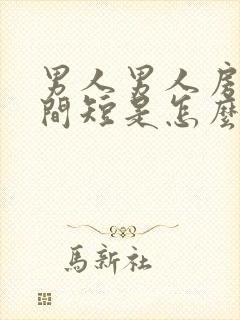 男人男人房
間短是怎麼
馬新社